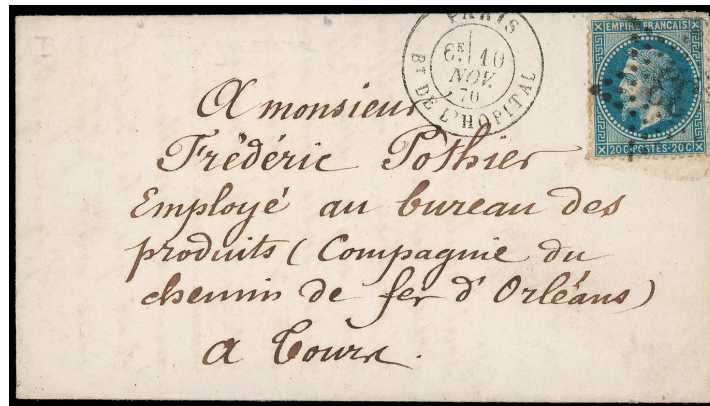 PARIS
6E 10
NOV.
70
Bt DE L'HOPITAL
EMPIRE FRANCAIS
20C-POSTES-20C
A monsieur
Frédéric Pothier
Employé au bureau des
produits (Compagnie du
chemin de fer d'Orléans)
a Tours.